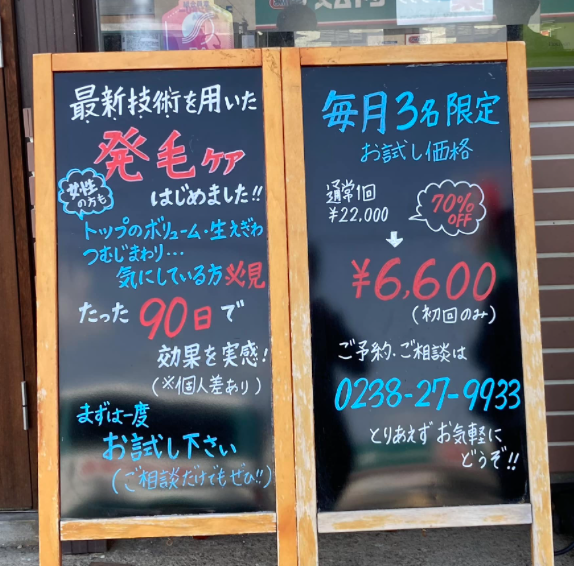 最新技術を用いた
発毛ケア
女性の方も
はじめました!!
トップのボリューム・生えぎわ
つむじまわり…
気にしている方必見
たった90日で
効果を実感!
(※個人差あり)
まずは一度
お試し下さい
(ご相談だけでもぜひ!!)
毎月3名限定
お試し価格
通常1回
¥22,000
70%
OFF
¥6,600
(初回のみ)
ご予約・ご相談は
0238-27-9933
とりあえずお気軽に
どうぞ!!